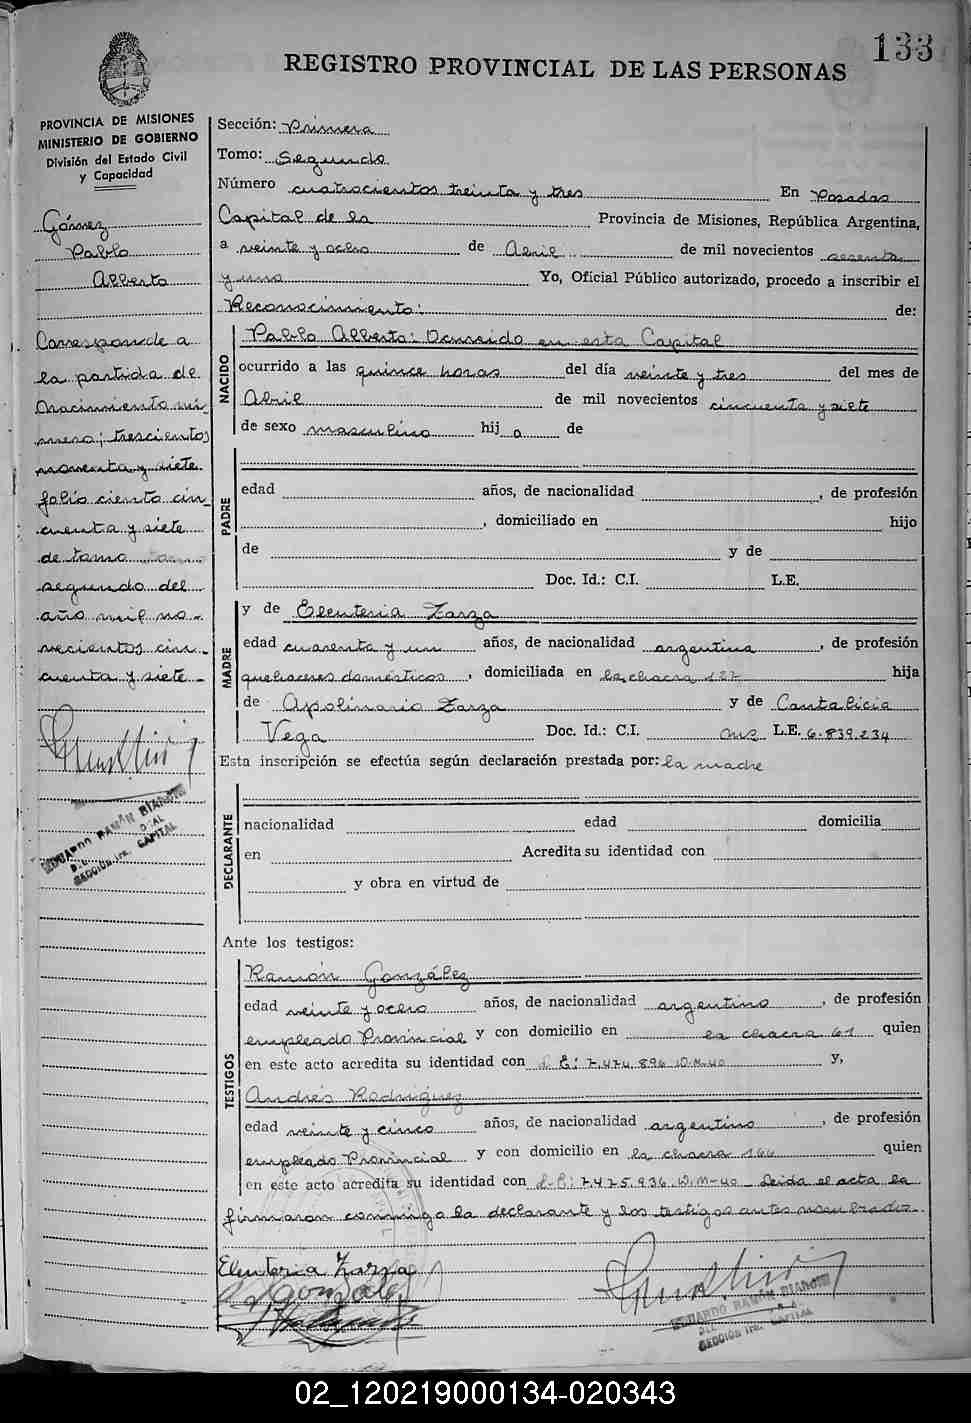 133
REGISTRO PROVINCIAL DE LAS PERSONAS
PROVINCIA DE MISIONES
MINISTERIO DE GOBIERNO
División del Estado Civil
y Capacidad
Gómez
Pablo
Alberto
Corresponde a
la partida de
nacimiento nú
mero; trescientos
noventa y siete
folio ciento cin
cuenta y siete
de tomo
segundo del
año mil no-
vecientos cin-
cuenta y siete-
EDUARDO RAMÓN BIANCHI
SECCIÓN 1ra. CAPITAL
Sección: Primera
Tomo: Segundo
Número cuatrocientos treinta y tres En Posadas
Capital de la Provincia de Misiones, República Argentina,
a veinte y ocho de Abril de mil novecientos sesenta
y uno Yo, Oficial Público autorizado, procedo a inscribir el
Reconocimiento: de:
NACIDO
Pablo Alberto: Ocurrido en esta Capital
ocurrido a las quince horas del día veinte y tres del mes de
Abril de mil novecientos cincuenta y siete
de sexo masculino hij o de
PADRE
edad años, de nacionalidad , de profesión
, domiciliado en hijo
de y de
Doc. Id.: C.I. L.E.
MADRE
y de Eleuteria Zarza
edad cuarenta y un años, de nacionalidad argentina , de profesión
quehaceres domésticos , domiciliada en la chacra 127 hija
de Apolinario Zarza y de Cantalicia
Vega Doc. Id.: C.I. L.E. 6.839.234
Esta inscripción se efectúa según declaración prestada por: la madre
DECLARANTE
nacionalidad edad domicilia
en Acredita su identidad con
y obra en virtud de
Ante los testigos:
TESTIGOS
Ramón González
edad veinte y ocho años, de nacionalidad argentino , de profesión
empleado Provincial y con domicilio en la chacra 61 quien
en este acto acredita su identidad con L.E: 7.474.896 D.M-40 y,
Andrés Rodríguez
edad veinte y cinco años, de nacionalidad argentino , de profesión
empleado Provincial y con domicilio en la chacra 166 quien
en este acto acredita su identidad con L.E: 7.475.936 D.M-40 - Leida el acta la
firmaron conmigo la declarante y los testigos antes nombrados.
Eleuteria Zarza
Gonzalez
EDUARDO RAMÓN BIANCHI
SECCIÓN 1ra. CAPITAL
02_120219000134-020343